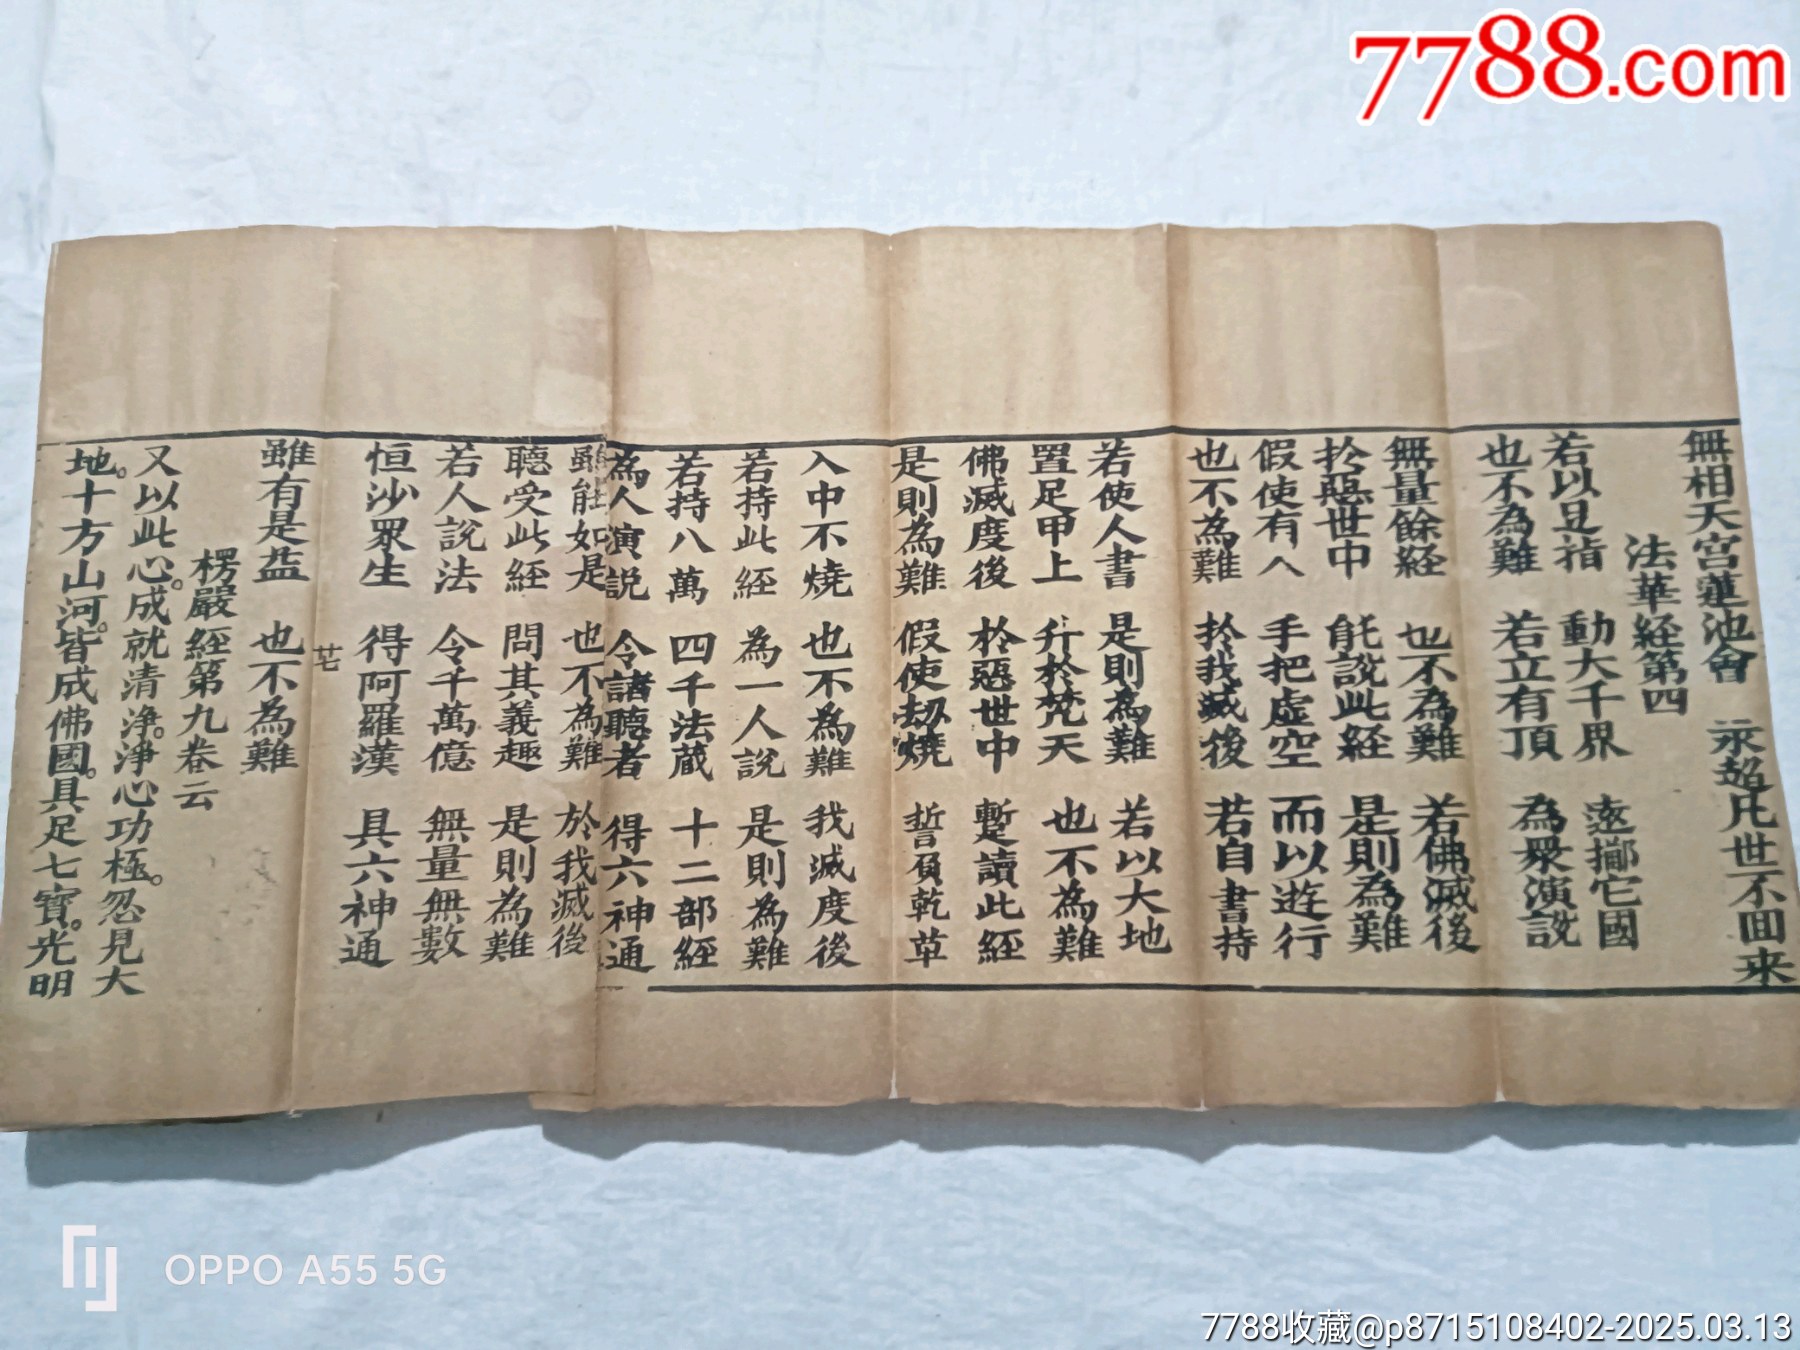 7788.com
無相天宮蓮池會 永超凡世不回来
法華経第四
若以足指 動大千界 遠擲它國
也不為難 若立有頂 為衆演説
無量餘経 也不為難 若佛滅後
扵惡世中 能説此経 是則為難
假使有人 手把虚空 而以遊行
也不為難 扵我滅後 若自書持
若使人書 是則為難 若以大地
置足甲上 升扵梵天 也不為難
佛滅度後 扵惡世中 暫讀此経
是則為難 假使刼燒 誓負乾草
入中不燒 也不為難 我滅度後
若持此経 為一人説 是則為難
若持八萬 四千法蔵 十二部経
為人演説 令諸聽者 得六神通
雖能如是 也不為難 於我滅後
聽受此経 問其義趣 是則為難
若人説法 令千萬億 無量無數
恒沙眾生 得阿羅漢 具六神通
雖有是益 也不為難
楞嚴経第九卷云
又以此心。成就清淨。淨心功極。忽見大
地。十方山河。皆成佛國。具足七寶。光明
OPPO A55 5G
7788收藏@p8715108402-2025.03.13